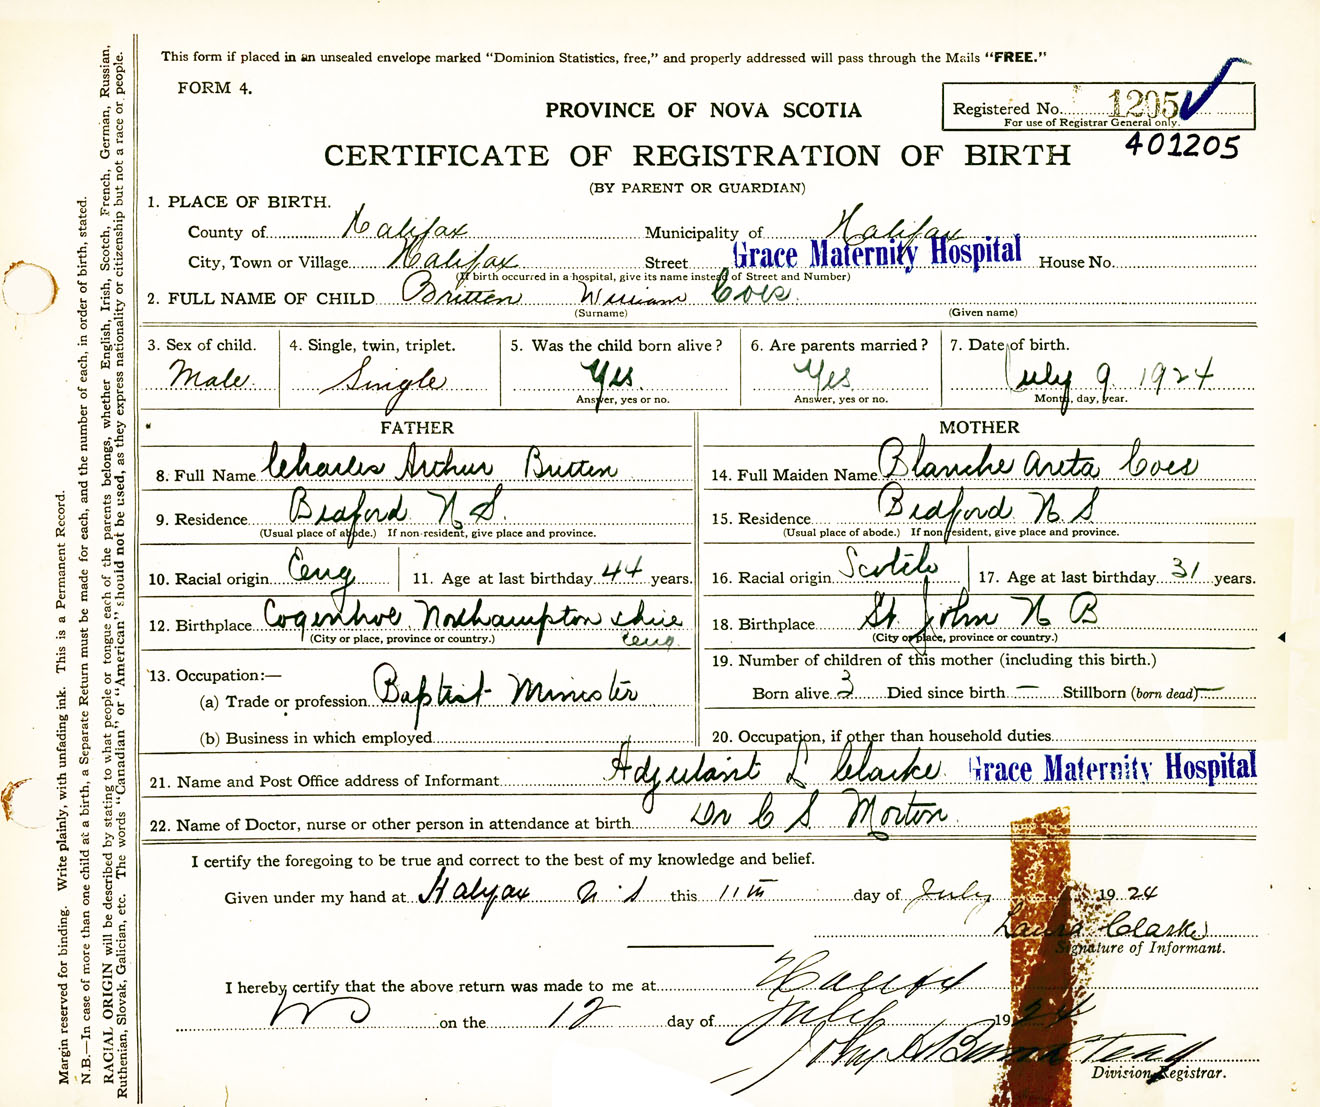 This form if placed in an unsealed envelope marked "Dominion Statistics, free," and properly addressed will pass through the Mails "FREE."
FORM 4.
PROVINCE OF NOVA SCOTIA
Registered No. 1205 ✓
For use of Registrar General only.
401205
CERTIFICATE OF REGISTRATION OF BIRTH
(BY PARENT OR GUARDIAN)
1. PLACE OF BIRTH.
County of Halifax Municipality of Halifax
City, Town or Village Halifax Street Grace Maternity Hospital House No.
(If birth occurred in a hospital, give its name instead of Street and Number)
2. FULL NAME OF CHILD Britten William Coes
(Surname) (Given name)
3. Sex of child. 4. Single, twin, triplet. 5. Was the child born alive? 6. Are parents married? 7. Date of birth.
Male Single Yes. Yes July 9 1924
Answer, yes or no. Answer, yes or no. Month, day, year.
FATHER
8. Full Name Charles Arthur Britten
9. Residence Bedford N S.
(Usual place of abode.) If non-resident, give place and province.
10. Racial origin Eng 11. Age at last birthday 44 years.
12. Birthplace Cogenhoe Northampton shire
(City or place, province or country.) Eng.
13. Occupation:—
(a) Trade or profession Baptist Minister
(b) Business in which employed
MOTHER
14. Full Maiden Name Blanche Areta Coes
15. Residence Bedford N S
(Usual place of abode.) If non resident, give place and province.
16. Racial origin Scotch 17. Age at last birthday 31 years.
18. Birthplace St. John N B
(City or place, province or country.)
19. Number of children of this mother (including this birth.)
Born alive 3 Died since birth — Stillborn (born dead) —
20. Occupation, if other than household duties
21. Name and Post Office address of Informant Adjutant L Clarke Grace Maternity Hospital
22. Name of Doctor, nurse or other person in attendance at birth Dr C S Morton
I certify the foregoing to be true and correct to the best of my knowledge and belief.
Given under my hand at Halifax N. S this 11th day of July 1924
Laura Clarke
Signature of Informant.
I hereby certify that the above return was made to me at Halifax
NS on the 12 day of July 1924
John A
Division Registrar.
Margin reserved for binding. Write plainly, with unfading ink. This is a Permanent Record.
N.B.—In case of more than one child at a birth, a Separate Return must be made for each, and the number of each, in order of birth, stated.
RACIAL ORIGIN will be described by stating to what people or tongue each of the parents belongs, whether English, Irish, Scotch, French, German, Russian,
Ruthenian, Slovak, Galician, etc. The words "Canadian" or "American" should not be used, as they express nationality or citizenship but not a race or people.